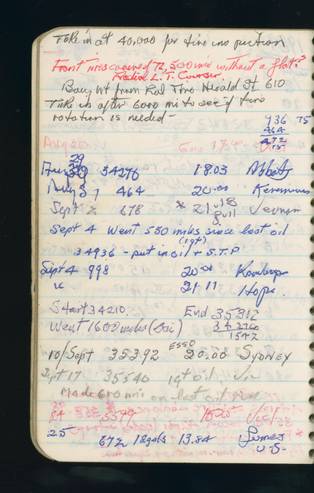 Take in at 40,000 for tire inspection
Front tires covered 72,300 mi without a flat?
Radial L.T. Courser.
Bought from Kal Tire Herald St 610
Take in after 6000 mi to see if tire
rotation is needed -
936 T5
464
472
Aug 30
29
34276 18.03 Abbots
Aug 31 464 20.00 Keremeos
Sept 2 678 21.18 Vernon
full
Sept 4 Went 550 miles since last oil
(1qt)
34936 - put in oil + S.T.P
Sept 4 998 20.00 Kamloops
" 21.11 Hope.
Start 34210 End 35812
Went 1600 miles
34270
1542
ESSO
10/Sept 35392 20.00 Sydney
Sept 17 35540 1qt oil, Vic
Made 600 mi on last oil
24
25 672 18 gals 13.84 Sumas
U.S.